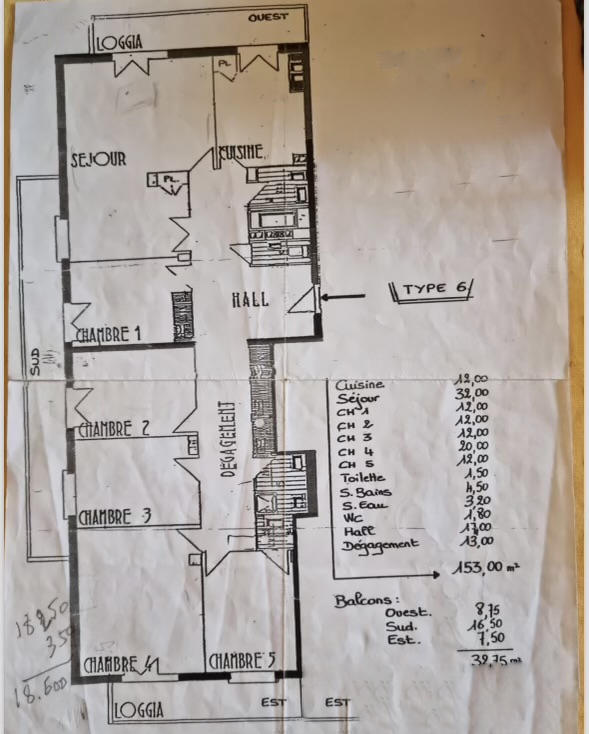 OUEST
LOGGIA
PL
SEJOUR
CUISINE
PL
HALL
TYPE 6
CHAMBRE 1
SUD
CHAMBRE 2
DEGAGEMENT
CHAMBRE 3
CHAMBRE 4
CHAMBRE 5
LOGGIA
EST
EST
Cuisine 12,00
Séjour 32,00
CH 1 12,00
CH 2 12,00
CH 3 12,00
CH 4 20,00
CH 5 12,00
Toilette 1,50
S. Bains 4,50
S. Eau 3,20
WC 1,80
Hall 17,00
Dégagement 13,00
153,00 m²
Balcons :
Ouest. 8,75
Sud. 16,50
Est. 7,50
32,75 m²
18250
350
18.600